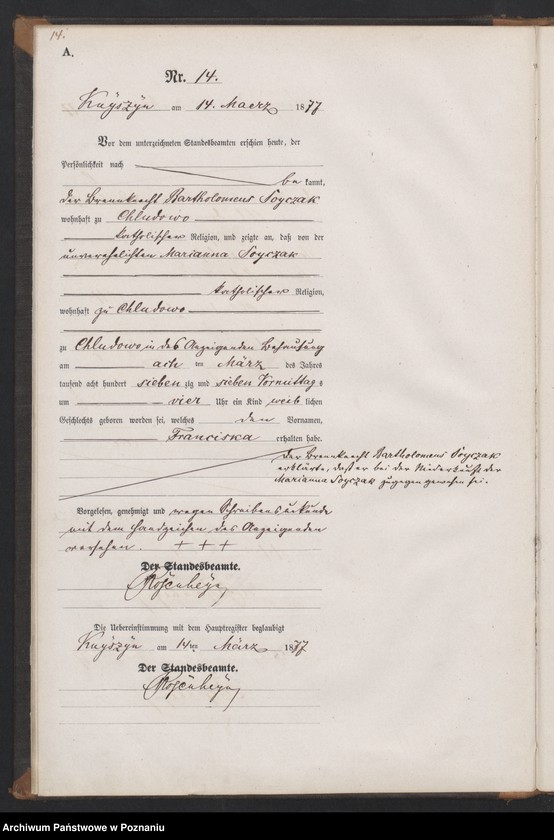 14.
A.
Nr. 14.
am 14. Maerz 1877
Vor dem unterzeichneten Standesbeamten erschien heute, der
Persönlichkeit nach
be kannt,
der Brennknecht Bartholomeus Soyczak
wohnhaft zu Chludowo
katholischer Religion, und zeigte an, daß von der
unverehelichten Marianna Soyczak
katholischer Religion,
wohnhaft zu Chludowo
zu Chludowo in des Anzeigenden Behausung
am acht ten März des Jahres
tausend acht hundert sieben zig und sieben Vormittag s
um vier Uhr ein Kind weib lichen
Geschlechts geboren worden sei, welches den Vornamen,
Franciska erhalten habe.
Der Brennknecht Bartholomeus Soyczak
erklärte, daß er bei der Niederkunft der
Marianna Soyczak zugegen gewesen sei.
Vorgelesen, genehmigt und wegen Schreibensunkunde
mit dem Handzeichen des Anzeigenden
versehen. + + +
Der Standesbeamte.
Rosenheyn
Die Uebereinstimmung mit dem Hauptregister beglaubigt
am 14ten März 1877
Der Standesbeamte.
Rosenheyn
Archiwum Państwowe w Poznaniu